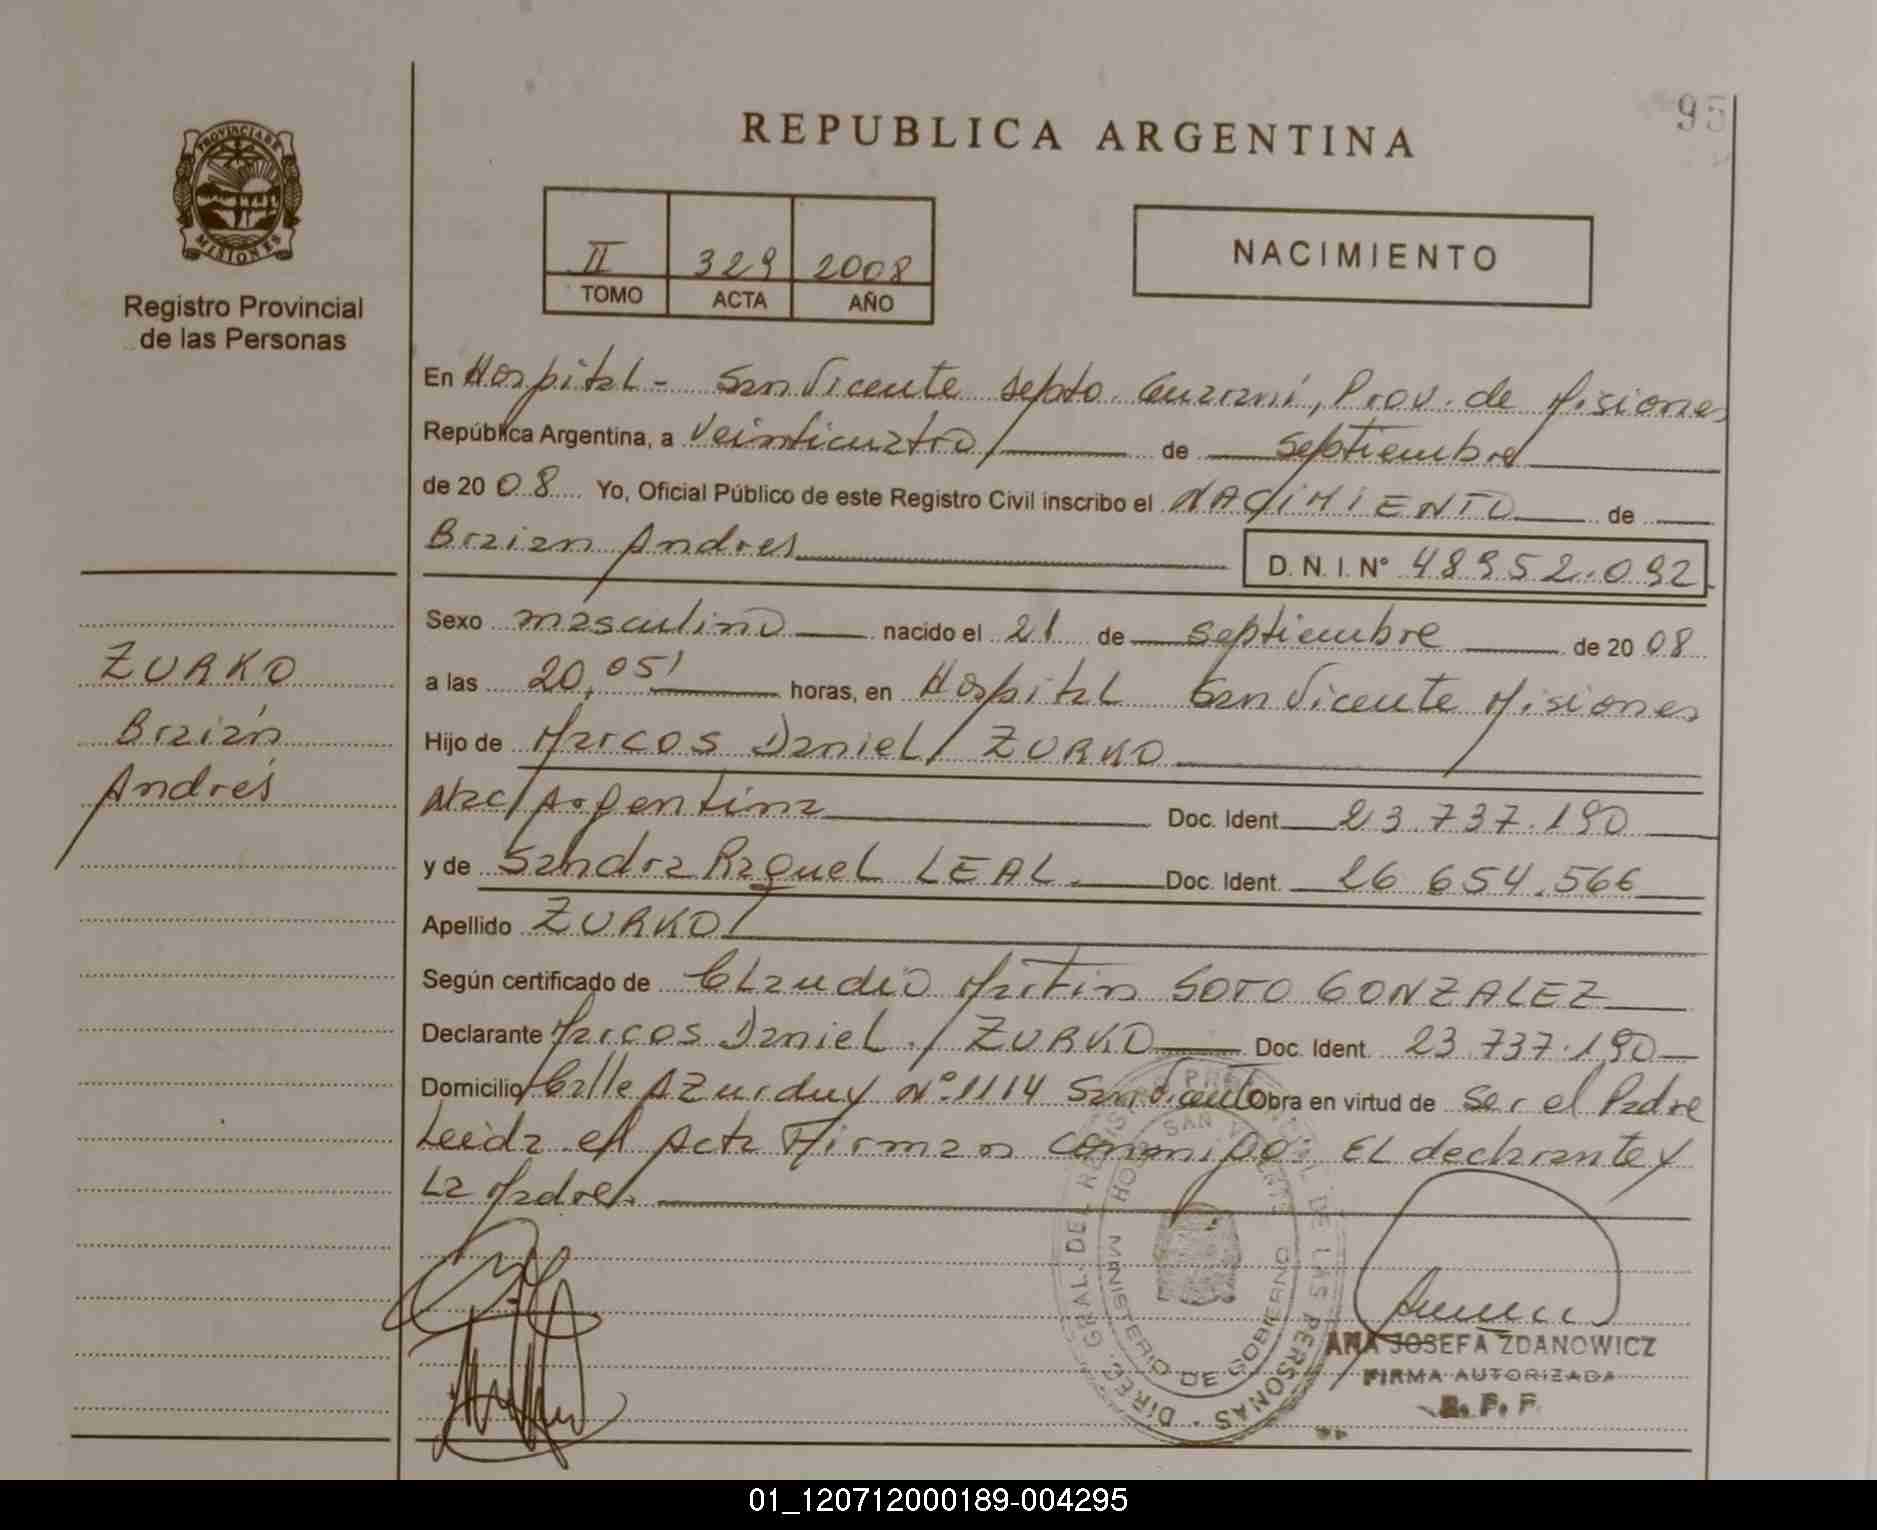 95
REPUBLICA ARGENTINA
PROVINCIA DE
MISIONES
Registro Provincial
de las Personas
II 329 2008
TOMO ACTA AÑO
NACIMIENTO
En Hospital - San Vicente Depto. Guaraní, Prov. de Misiones
República Argentina, a Veinticuatro de Septiembre
de 20 08 Yo, Oficial Público de este Registro Civil inscribo el NACIMIENTO de
Braian Andres D.N.I. Nº 48952.092
Sexo masculino nacido el 21 de Septiembre de 20 08
a las 20,05' horas, en Hospital San Vicente Misiones
Hijo de Marcos Daniel ZURKO
Nac Argentina Doc. Ident. 23.737.190
y de Sandra Raquel LEAL. Doc. Ident. 26 654.566
Apellido ZURKO
Según certificado de Claudio Martin SOTO GONZALEZ
Declarante Marcos Daniel ZURKO Doc. Ident. 23 737.190
Domicilio Calle AZurduy Nº.1114 San Vicente Obra en virtud de Ser el Padre
Leida el Acta Firman conmigo: EL declarante y
La Madre.
ZURKO
Braián
Andrés
DIREC. GRAL. DEL REGISTRO PROVINCIAL DE LAS PERSONAS
HOSP. SAN VICENTE
MINISTERIO DE GOBIERNO
ANA JOSEFA ZDANOWICZ
FIRMA AUTORIZADA
R. P. P.
01_120712000189-004295